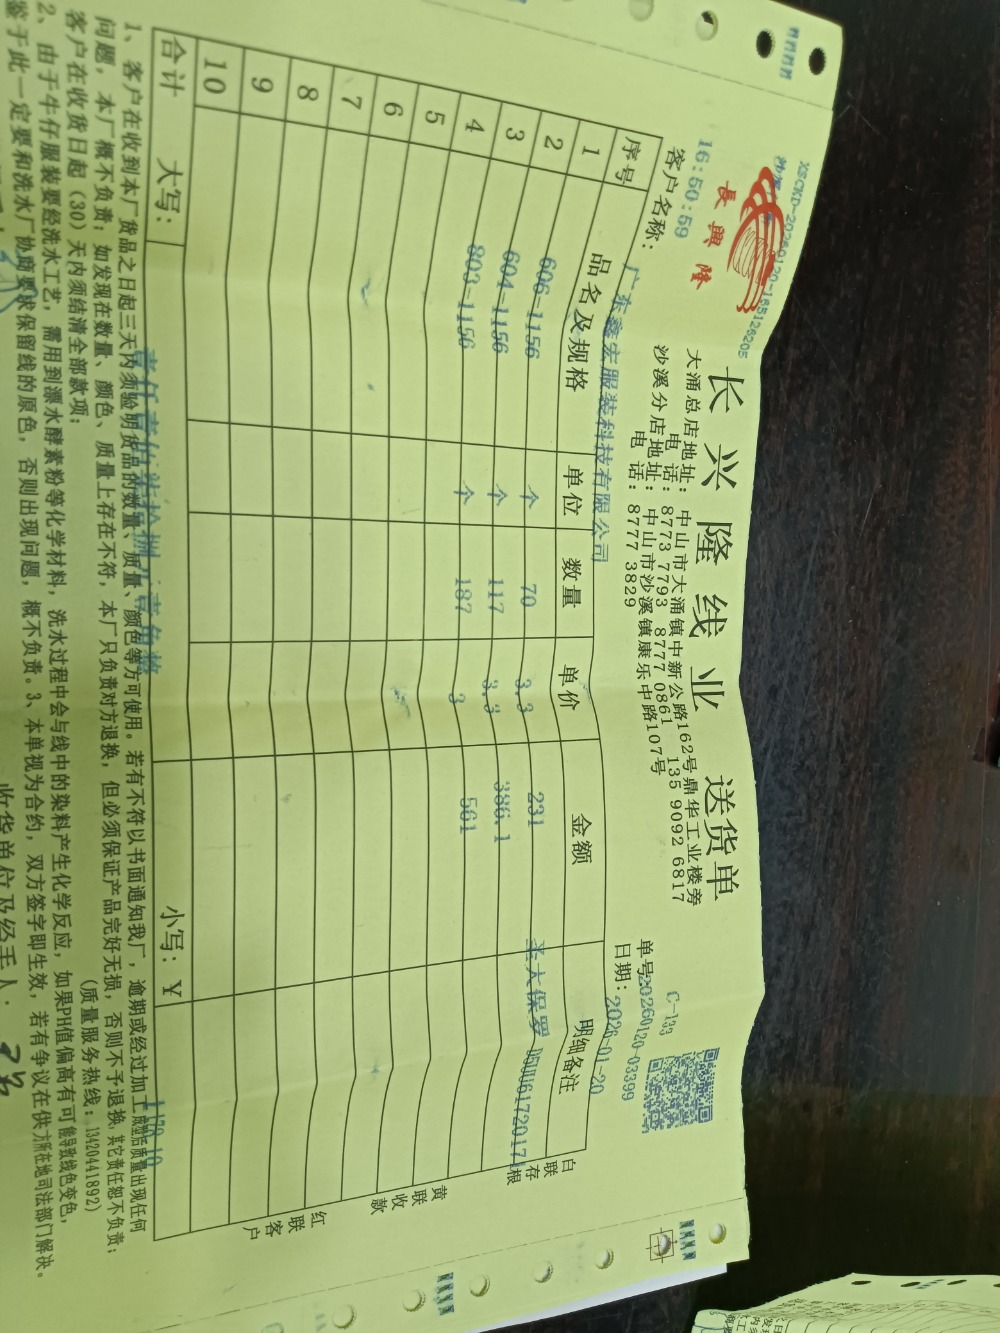 XSCKD-20260120-185128205
長興隆
长兴隆线业 送货单
大涌总店地址：中山市大涌镇中新公路162号鼎华工业楼旁
电 话：8773 7793 8777 0861 135 9092 6817
沙溪分店地址：中山市沙溪镇康乐中路107号
电 话：8777 3829
C-133
16:50:59
单号20260120-03399
客户名称：广东鑫宏服装科技有限公司
日期：2026-01-20
序号 品名及规格 单位 数量 单价 金额 明细备注
1 606-1156 个 70 3.3 231 圣大保罗 D5UU6172017
2 604-1156 个 117 3.3 386.1
3 803-1156 个 187 3 561
4
5
6
7
8
9
10
合计 大写： 小写：¥
白联存根
黄联收款
红联客户
1、客户在收到本厂货品之日起三天内须验明货品的数量、质量、颜色等方可使用。若有不符以书面通知我厂，逾期或经过加工成型后质量出现任何
问题，本厂概不负责；如发现在数量、颜色、质量上存在不符，本厂只负责对方退换，但必须保证产品完好无损，否则不予退换，其它责任恕不负责；
客户在收货日起（30）天内须结清全部款项； （质量服务热线：13420441892）
2、由于牛仔服装要经洗水工艺，需用到漂水酵素粉等化学材料，洗水过程中会与线中的染料产生化学反应，如果PH值偏高有可能导致线色变色，
鉴于此一定要和洗水厂协商要求保留线的原色，否则出现问题，概不负责。3、本单视为合约，双方签字即生效，若有争议在供方所在地司法部门解决。
收货单位及经手人：